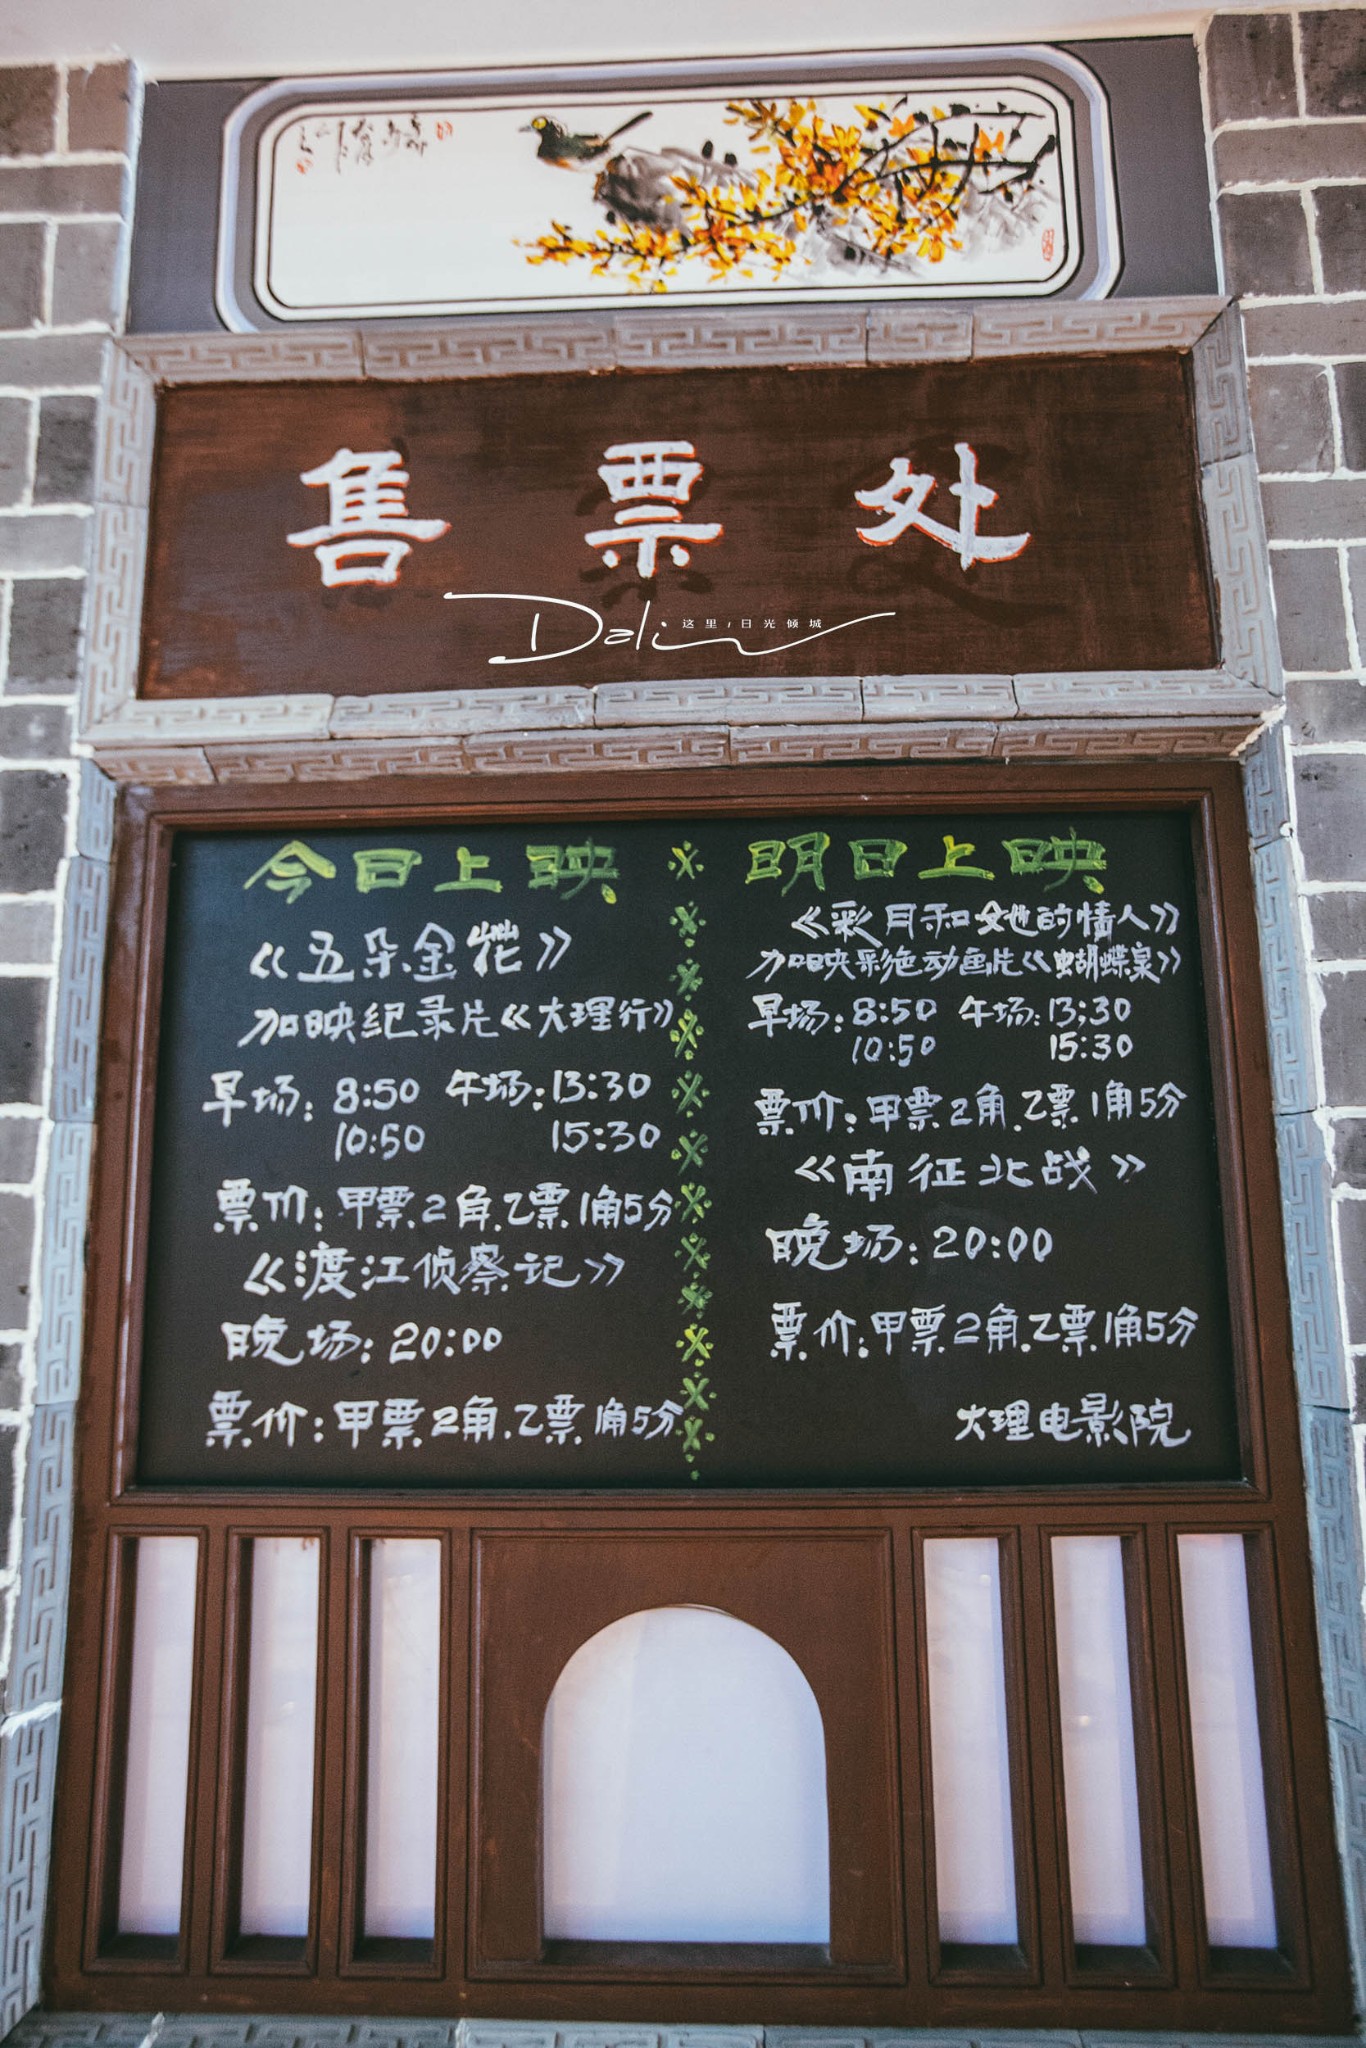 售票处
Dali
这里,日光倾城
今日上映
《五朵金花》
加映纪录片《大理行》
早场:8:50 午场:13:30
10:50 15:30
票价:甲票2角.乙票1角5分
《渡江侦察记》
晚场:20:00
票价:甲票2角.乙票1角5分
明日上映
《彩月和她的情人》
加映彩色动画片《蝴蝶泉》
早场:8:50 午场:13:30
10:50 15:30
票价:甲票2角.乙票1角5分
《南征北战》
晚场:20:00
票价:甲票2角.乙票1角5分
大理电影院